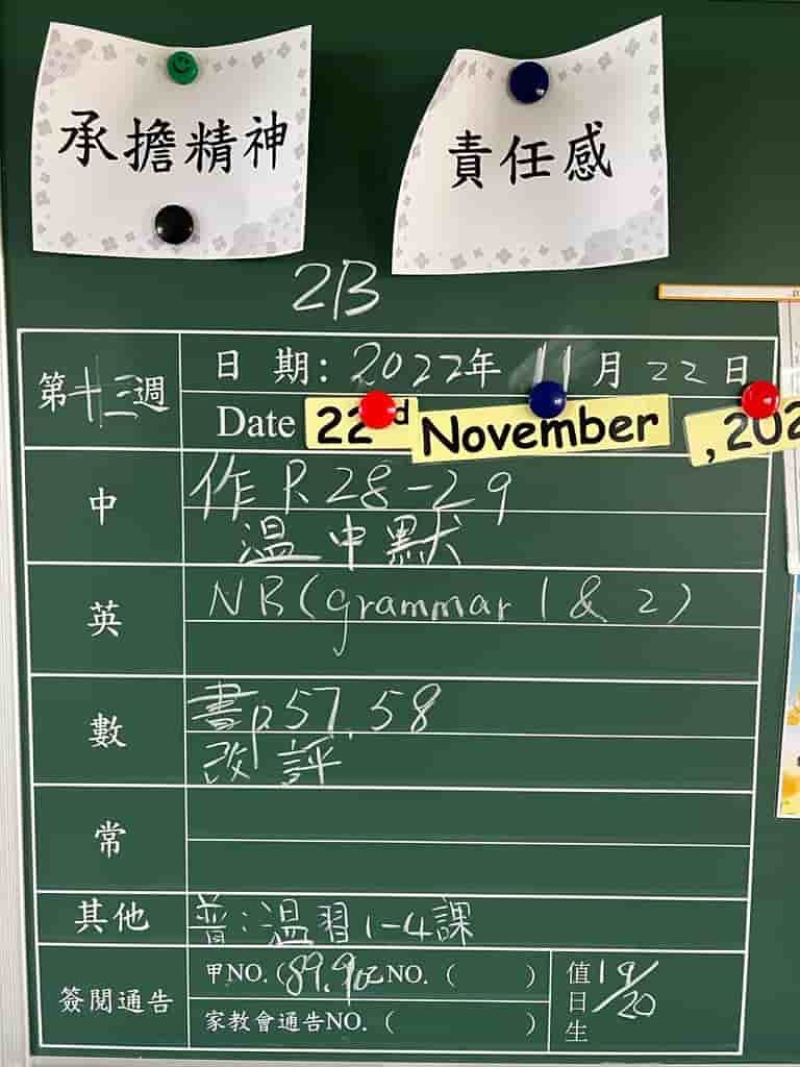 承擔精神
責任感
2B
第十三週
日 期：2022年 11月 22日
Date 22nd November , 202
中
作 P.28-29
溫 中默
英
NB(grammar 1 & 2)
數
書p.57.58
改 評
常
其他
普：溫習1-4課
簽閱通告
甲NO.(89.90乙NO.（ ）
家教會通告NO.（ ）
值日生
19/20